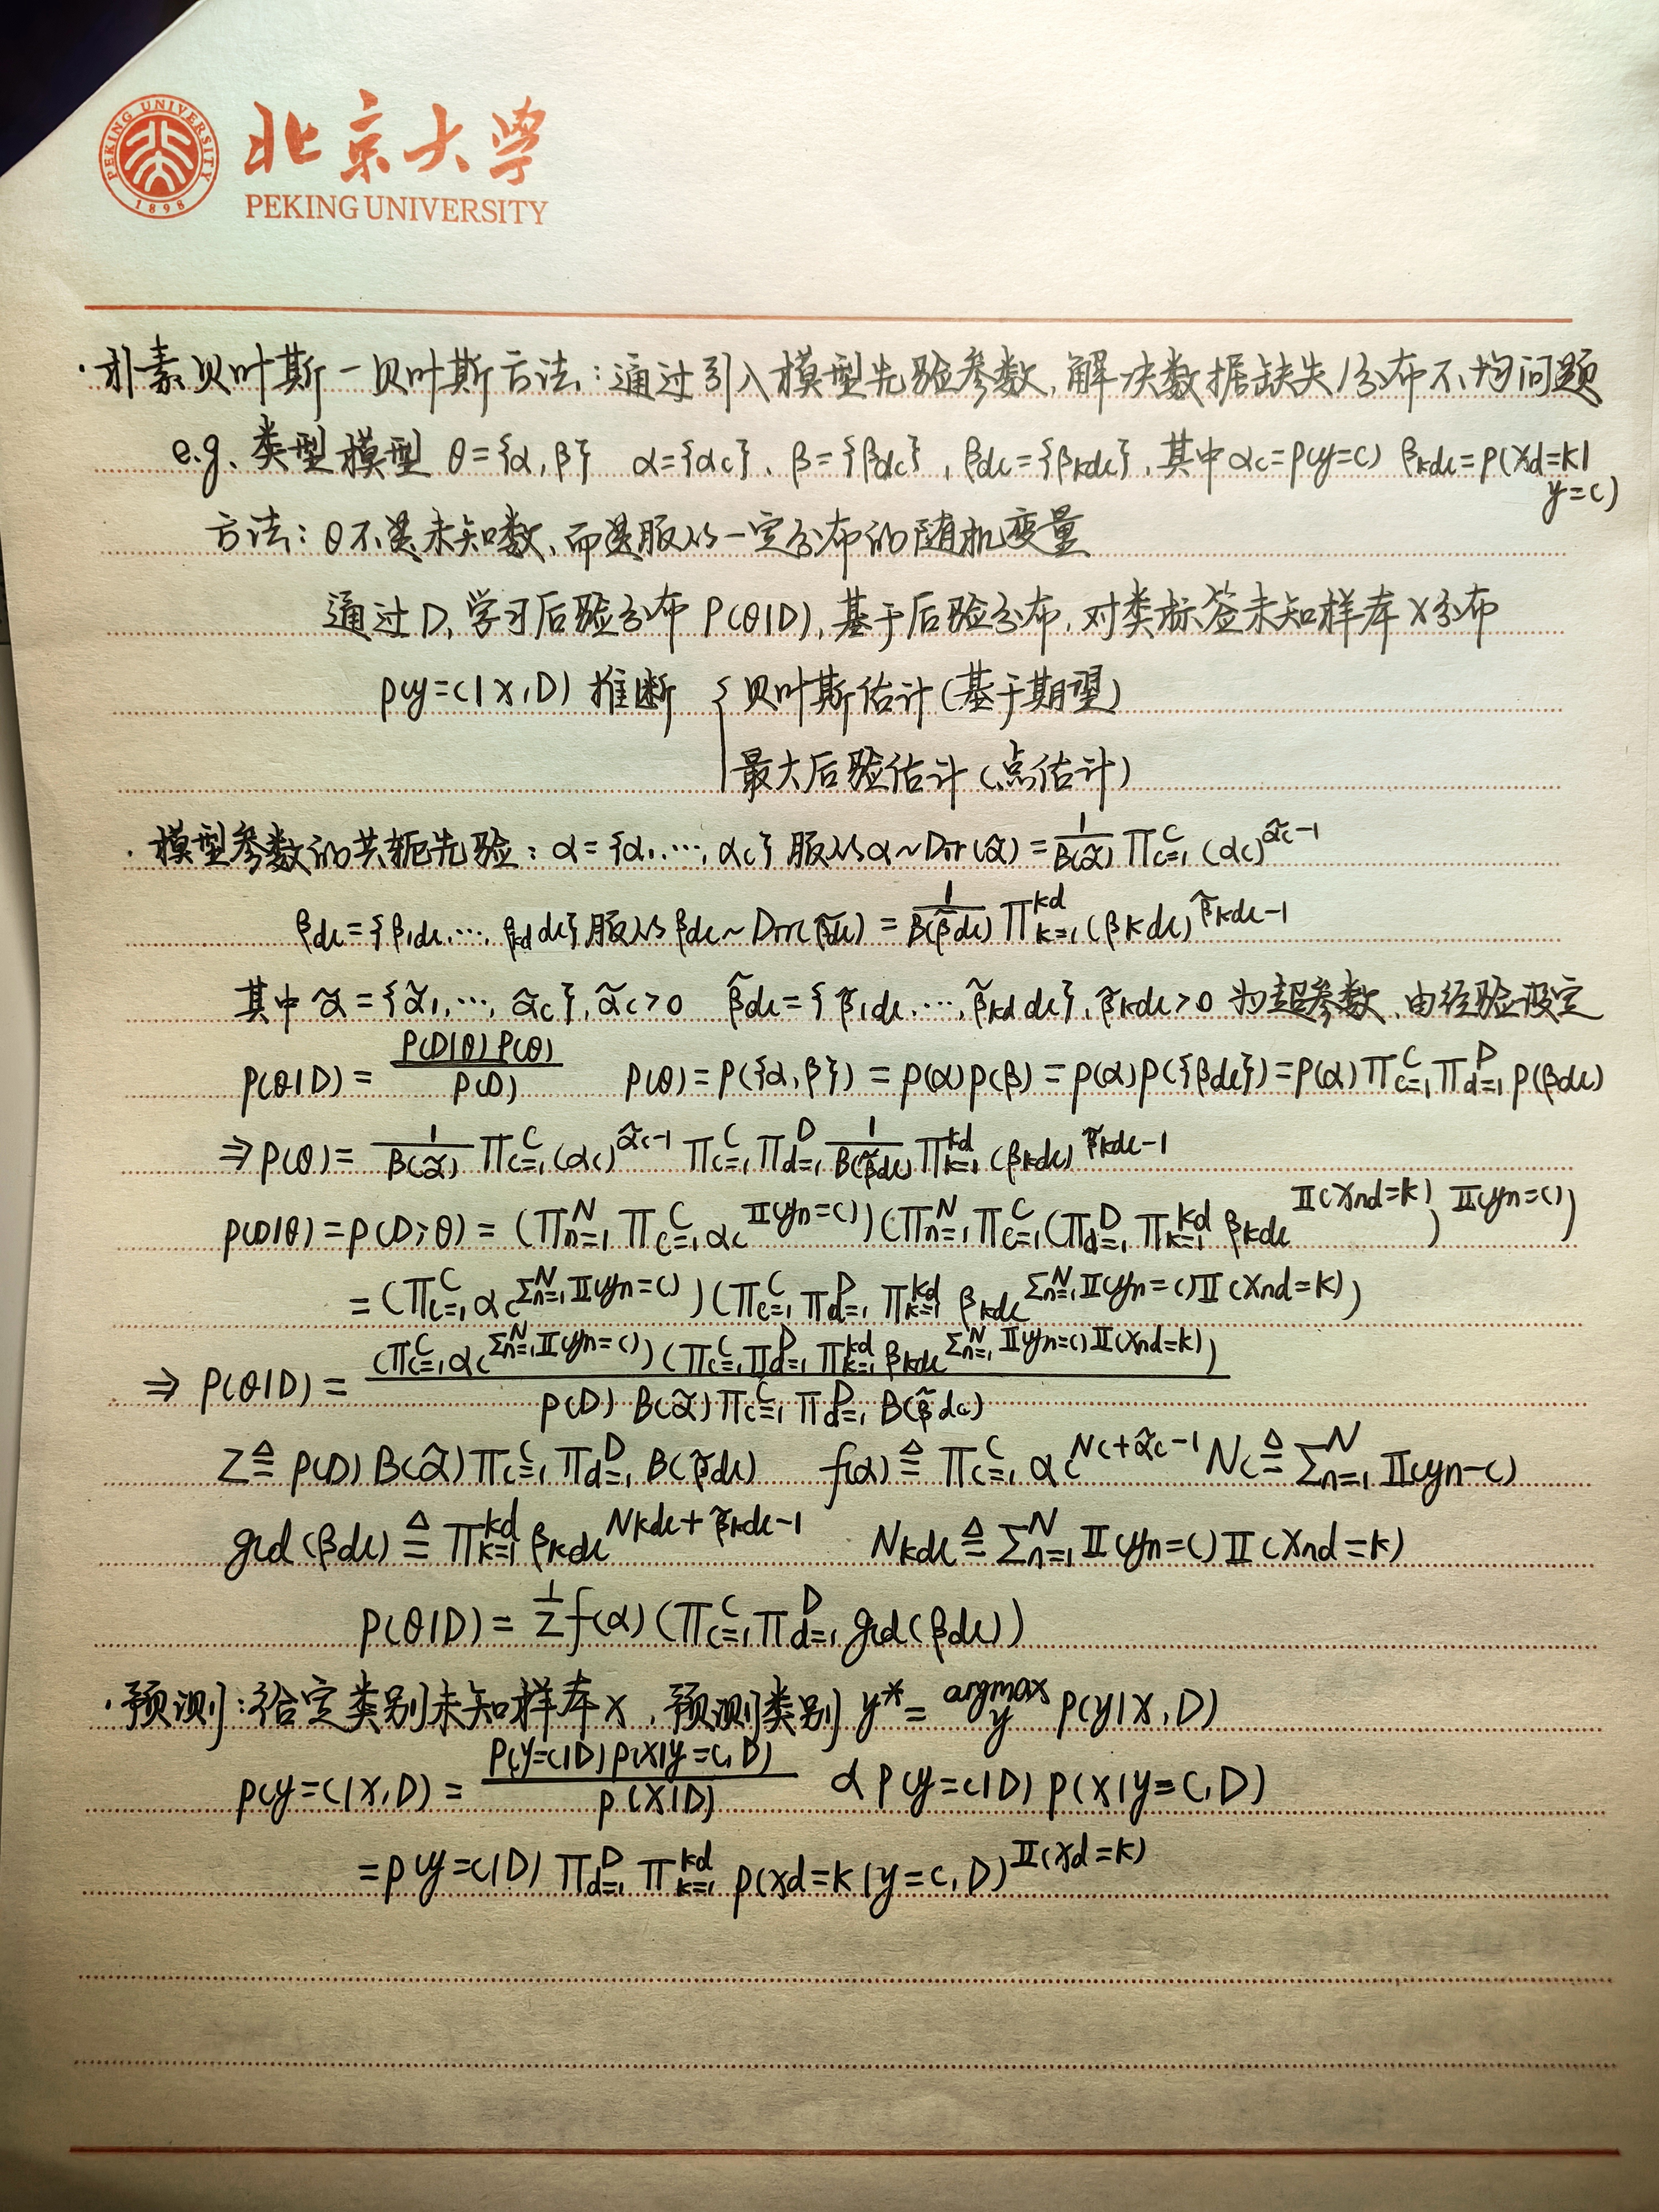 PEKING UNIVERSITY
1898
北京大学
PEKING UNIVERSITY
·朴素贝叶斯-贝叶斯方法:通过引入模型先验参数,解决数据缺失/分布不均问题
e.g. 类型模型 θ={α,β} α={αc}、β={βdc},βdc={βkdc},其中αc=p(y=c) βkdc=p(xd=k|
y=c)
方法:θ不是未知数,而是服从一定分布的随机变量
通过D,学习后验分布 P(θ|D),基于后验分布,对类标签未知样本x分布
p(y=c|x,D) 推断 { 贝叶斯估计(基于期望)
最大后验估计(点估计)
·模型参数的共轭先验:α={α1,…,αc} 服从α~Dir(α̃)=1/B(α̃) ∏c=1^C (αc)^α̃c-1
βdc={β1dc,…,βkd dc}服从βdc~Dir(β̃dc)=1/B(β̃dc) ∏k=1^kd (βkdc)^β̃kdc-1
其中α̃={α̃1,…,α̃c},α̃c>0 β̃dc={β̃1dc,…,β̃kd dc},β̃kdc>0 为超参数,由经验设定
p(θ|D)=P(D|θ)P(θ)/P(D) p(θ)=p({α,β})=p(α)p(β)=p(α)p({βdc})=p(α)∏c=1^C ∏d=1^D p(βdc)
⇒p(θ)=1/B(α̃) ∏c=1^C (αc)^α̃c-1 ∏c=1^C ∏d=1^D 1/B(β̃dc) ∏k=1^kd (βkdc)^β̃kdc-1
p(D|θ)=p(D;θ)=(∏n=1^N ∏c=1^C αc^𝕀(yn=c))(∏n=1^N ∏c=1^C (∏d=1^D ∏k=1^kd βkdc^𝕀(xnd=k))^𝕀(yn=c))
=(∏c=1^C αc^∑n=1^N 𝕀(yn=c))(∏c=1^C ∏d=1^D ∏k=1^kd βkdc^∑n=1^N 𝕀(yn=c)𝕀(xnd=k))
⇒ p(θ|D)=(∏c=1^C αc^∑n=1^N 𝕀(yn=c))(∏c=1^C ∏d=1^D ∏k=1^kd βkdc^∑n=1^N 𝕀(yn=c)𝕀(xnd=k))/p(D) B(α̃)∏c=1^C ∏d=1^D B(β̃dc)
Z≜p(D)B(α̃)∏c=1^C ∏d=1^D B(β̃dc) f(α)≜∏c=1^C αc^Nc+α̃c-1 Nc≜∑n=1^N 𝕀(yn-c)
gcd(βdc)≜∏k=1^kd βkdc^Nkdc+β̃kdc-1 Nkdc≜∑n=1^N 𝕀(yn=c)𝕀(xnd=k)
p(θ|D)=1/Z f(α)(∏c=1^C ∏d=1^D gcd(βdc))
·预测:给定类别未知样本x,预测类别 y*=argmax y p(y|x,D)
p(y=c|x,D)=P(y=c|D)p(x|y=c,D)/p(x|D) ∝ p(y=c|D) p(x|y=c,D)
=p(y=c|D) ∏d=1^D ∏k=1^kd p(xd=k|y=c,D)^𝕀(xd=k)